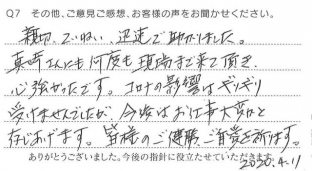 Q7 その他、ご意見ご感想、お客様の声をお聞かせください。
親切、ていねい、迅速で助かりました。
真崎さんにも何度も現場まで来て頂き、
心強かったです。コロナの影響はギリギリ
受けませんでしたが、今後はお仕事大変かと
存じあげます。皆様のご健勝、ご自愛を祈ります。
ありがとうございました。今後の指針に役立たせていただきます。
2020.4.11